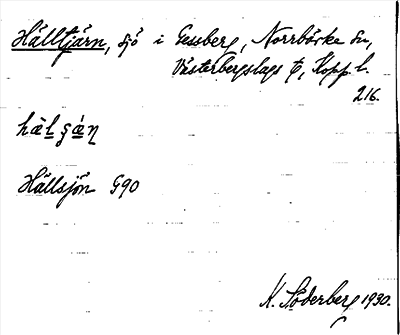 Hälltjärn, sjö i Gessberg, Norrbärke sn,
Västerbergslags tg, Kopp. l.
216.
hälşä́ṇ
Hällsjön G90
K. Söderberg 1930.